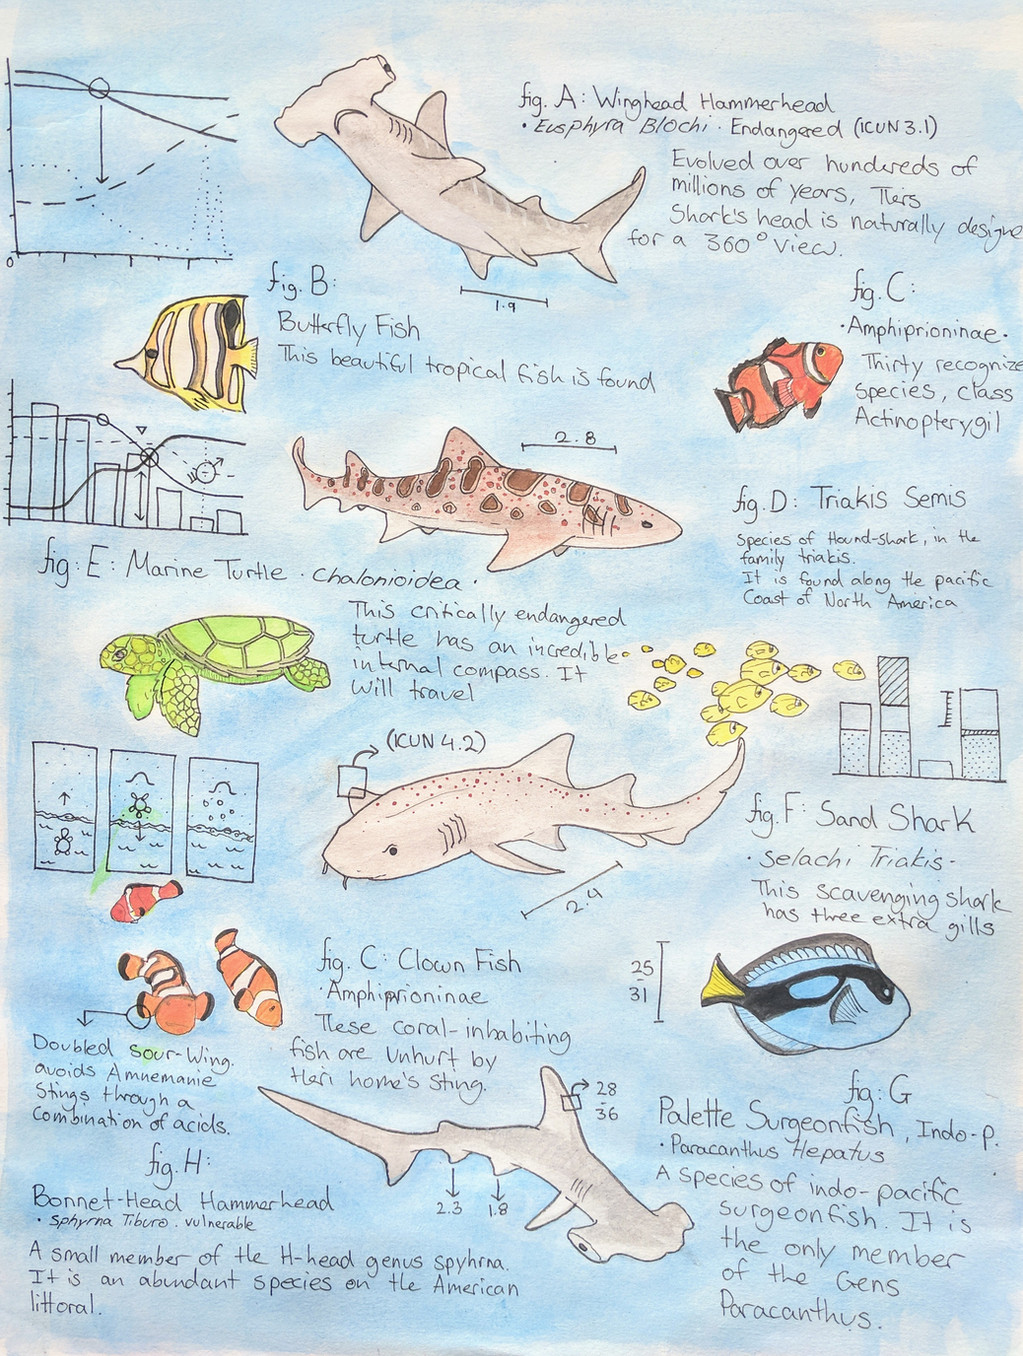 fig. A: Winghead Hammerhead
• Eusphyra Blochi • Endangered (ICUN 3.1)
Evolved over hundereds of
millions of years, Theis
Shark's head is naturally designe
for a 360° view.
0
1.9
fig. B:
Butterfly Fish
This beautiful tropical fish is found
fig. C:
• Amphiprioninae •
Thirty recognize
species, class
Actinopterygil
2.8
fig. D: Triakis Semis
Species of Hound-shark, in the
family triakis.
It is found along the pacific
Coast of North America
fig: E: Marine Turtle • Chalonioidea •
This critically endangered
turtle has an incredible
internal compass. It
will travel
(ICUN 4.2)
2.4
fig. F: Sand Shark
• Selachi Triakis -
This scavenging shark
has three extra gills
fig. C: Clown Fish
• Amphiprioninae
These coral-inhabiting
fish are unhurt by
their home's sting.
Doubled sour-wing.
avoids Amnemanie
Stings through a
combination of acids.
25
31
fig: G
Palette Surgeonfish, Indo-P.
• Paracanthus Hepatus
A species of indo-pacific
surgeonfish. It is
the only member
of the Gens
Paracanthus.
28
36
2.3
1.8
fig. H:
Bonnet-Head Hammerhead
• Sphyrna Tiburo . vulnerable
A small member of the H-head genus spyhrna.
It is an abundant species on the American
littoral.